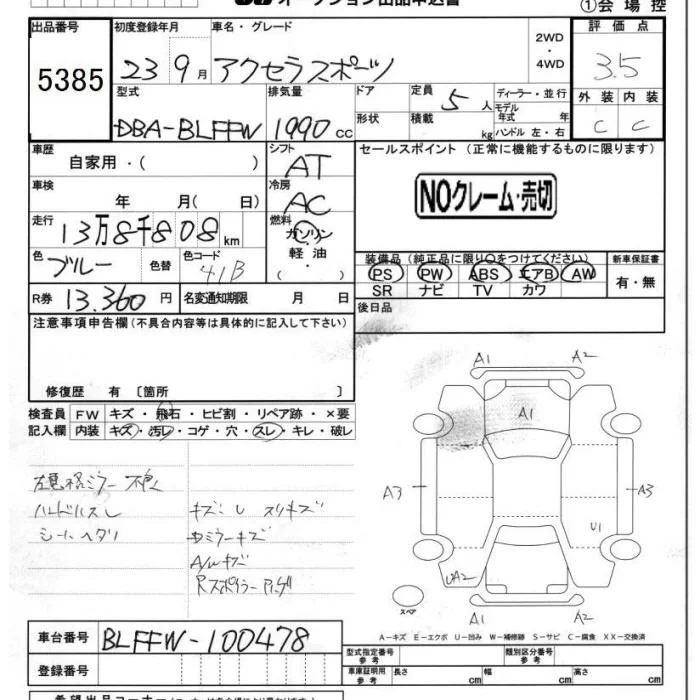 ①会場控
出品番号
初度登録年月
車名・グレード
2WD
・
4WD
評価点
5385
23 9月
アクセラスポーツ
3.5
型式
排気量
ドア
定員
5人
ディーラー・並行
モデル
年式 年
外装 内装
DBA-BLFFW
1990 cc
形状
積載
kg
ハンドル 左・右
C C
車歴
自家用・( )
シフト
AT
セールスポイント (正常に機能するものに限ります)
車検
年 月( 日)
冷房
AC
NOクレーム・売切
走行
13万8千808km
燃料
ガソリン
軽油
・( )
色
ブルー
色替
色コード
41B
装備品 (純正品に限り○をつけてください)
新車保証書
PS PW ABS エアB AW
SR ナビ TV カワ
有・無
R券
13.360円
名変通知期限 月 日
後日品
注意事項申告欄(不具合内容等は具体的に記入して下さい)
修復歴 有 〔箇所 〕
検査員
記入欄
FW キズ・飛石・ヒビ割・リペア跡・×要
内装 キズ・汚レ・コゲ・穴・スレ・キレ・破レ
ハンドルスレ
シートヘタリ
A/Wキズ
A1 A2
A1
A3 A3
U1
UA2
スペア
A1 A2
A-キズ E-エクボ U-凹み W-補修跡 S-サビ C-腐食 XX-交換済
車台番号
BLFFW-100478
登録番号
型式指定番号
参考
類別区分番号
参考
車庫証明用
参考
長さ cm
幅 cm
高さ cm